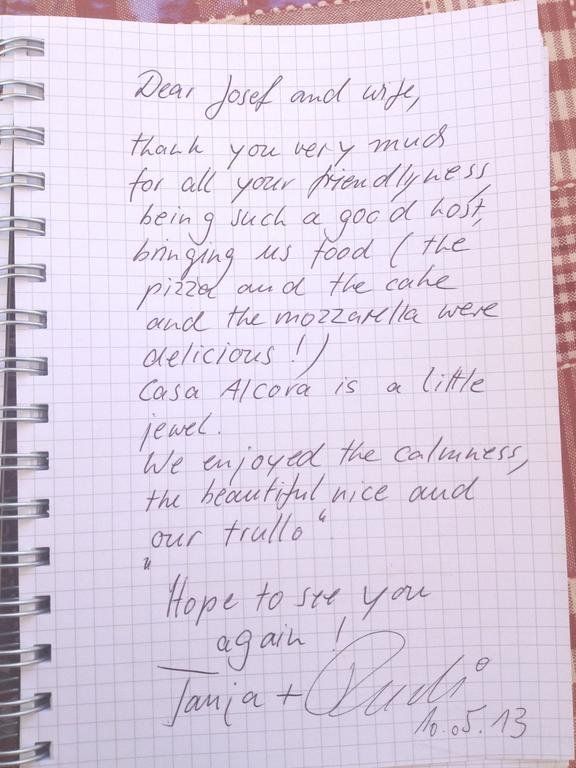 Dear Josef and wife,
thank you very much
for all your friendlyness,
being such a good host,
bringing us food ( the
pizza and the cake
and the mozzarella were
delicious ! )
Casa Alcora is a little
jewel.
We enjoyed the calmness,
the beautiful nice and
„our trullo“
Hope to see you
again !
Tanja + Rudi
10.05.13